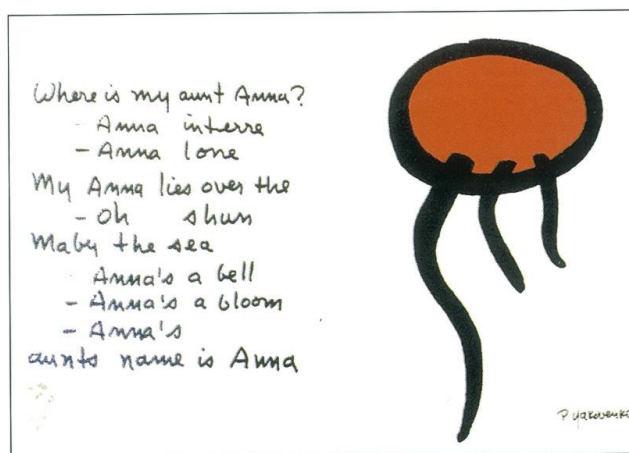 Where is my aunt Anna?
- Anna interre
- Anna lone
My Anna lies over the
- Oh shun
Maby the sea
- Anna's a bell
- Anna's a bloom
- Anna's
aunts name is Anna
P. Yakovenko